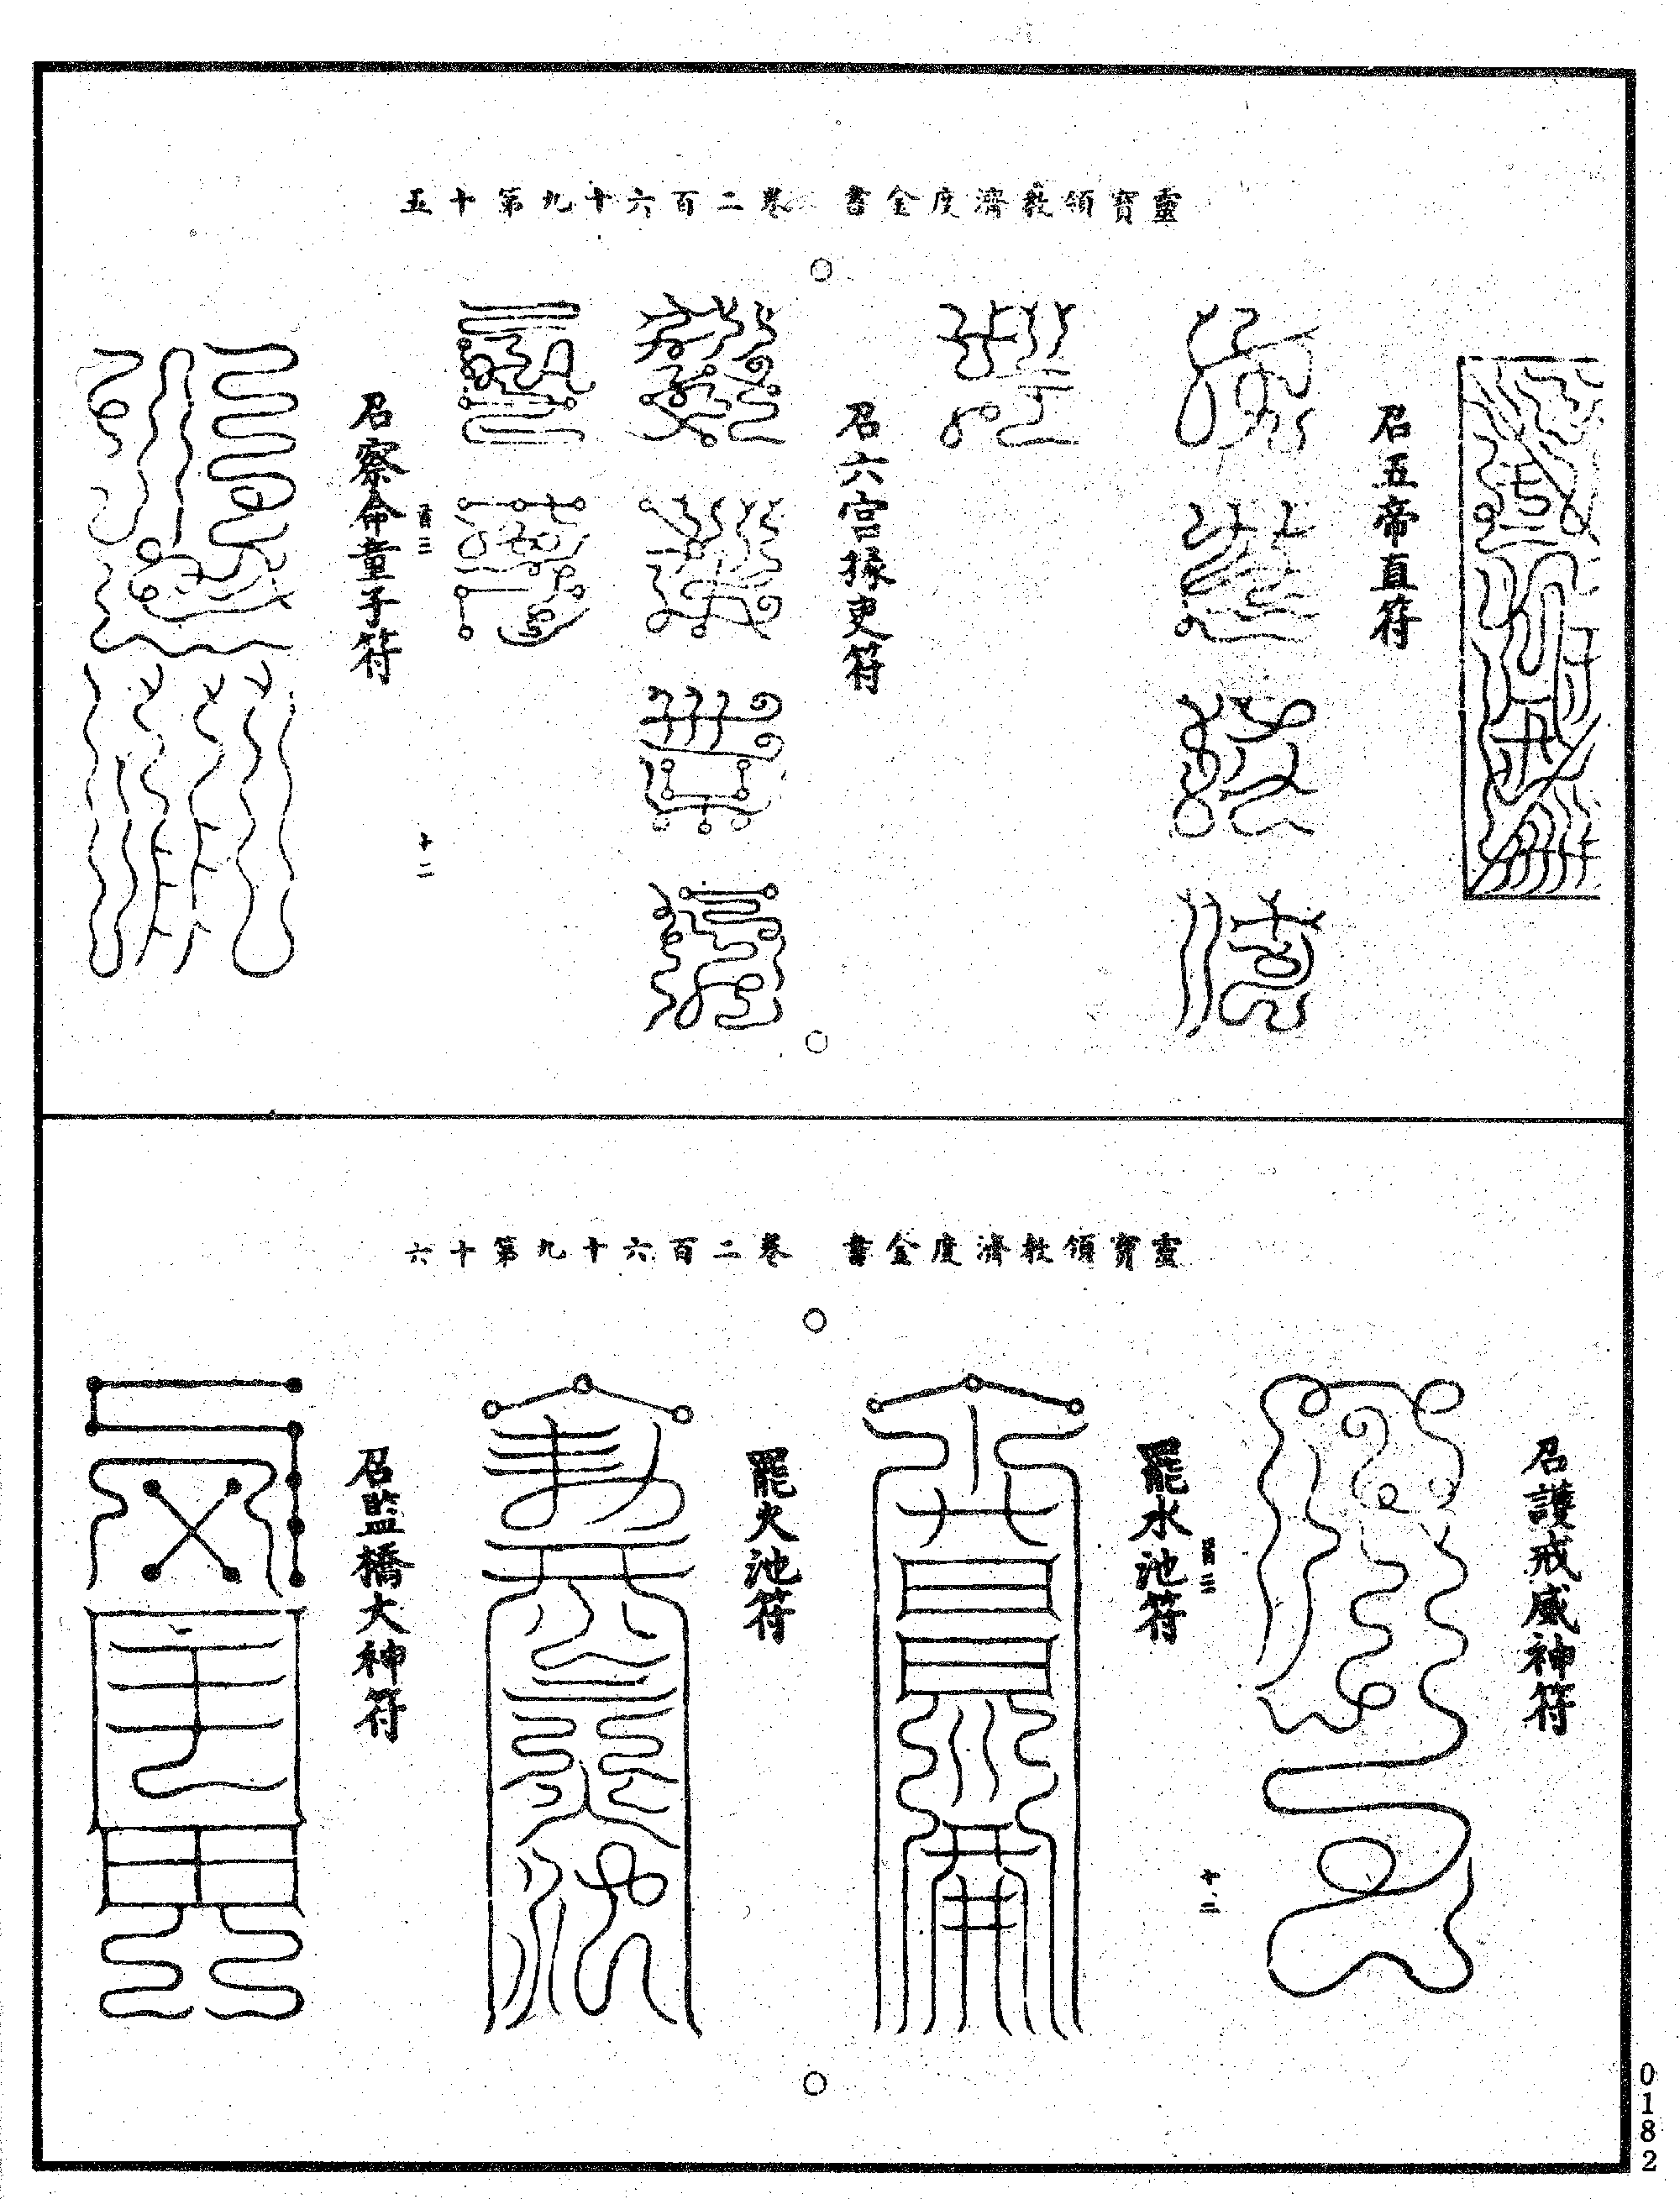 靈寶領教濟度金書　卷二百六十九第十五
召五帝直符
召六宮掾吏符
十二
召察命童子符
靈寶領教濟度金書　卷二百六十九第十六
召護戒威神符
十三
罷水池符
罷火池符
召監橋大神符
0182